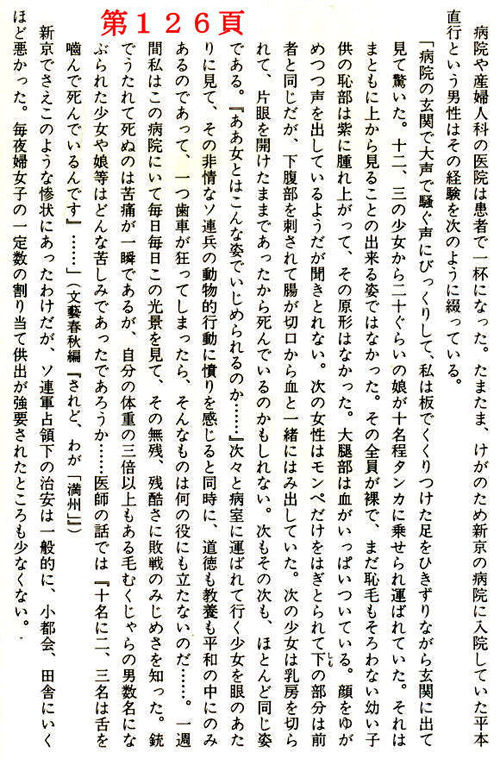 第126頁
病院や産婦人科の医院は患者で一杯になった。たまたま、けがのため新京の病院に入院していた平本
直行という男性はその経験を次のように綴っている。
「病院の玄関で大声で騒ぐ声にびっくりして、私は板でくくりつけた足をひきずりながら玄関に出て
見て驚いた。十二、三の少女から二十ぐらいの娘が十名程タンカに乗せられ運ばれていた。それは
まともに上から見ることの出来る姿ではなかった。その全員が裸で、まだ恥毛もそろわない幼い子
供の恥部は紫に腫れ上がって、その原形はなかった。大腿部は血がいっぱいついている。顔をゆが
めつつ声を出しているようだが聞きとれない。次の女性はモンペだけをはぎとられて下の部分は前
者と同じだが、下腹部を刺されて腸が切口から血と一緒にはみ出していた。次の少女は乳房を切ら
れて、片眼を開けたままであったから死んでいるのかもしれない。次もその次も、ほとんど同じ姿
である。『ああ女とはこんな姿でいじめられるのか……』次々と病室に運ばれて行く少女を眼のあた
りに見て、その非情なソ連兵の動物的行動に憤りを感じると同時に、道徳も教養も平和の中にのみ
あるのであって、一つ歯車が狂ってしまったら、そんなものは何の役にも立たないのだ……。一週
間私はこの病院にいて毎日毎日この光景を見て、その無残、残酷さに敗戦のみじめさを知った。銃
でうたれて死ぬのは苦痛が一瞬であるが、自分の体重の三倍以上もある毛むくじゃらの男数名にな
ぶられた少女や娘等はどんな苦しみであったであろうか……医師の話では『十名に二、三名は舌を
嚙んで死んでいるんです』……」（文藝春秋編『されど、わが「満州」』）
新京でさえこのような惨状にあったわけだが、ソ連軍占領下の治安は一般的に、小都会、田舎にいく
ほど悪かった。毎夜婦女子の一定数の割り当て供出が強要されたところも少なくない。